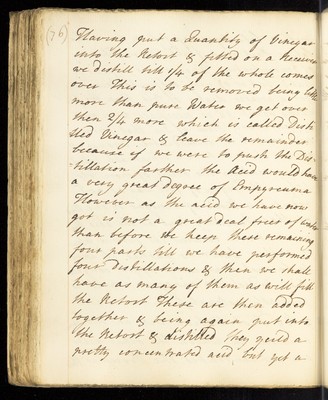 (76)
Having put a Quantity of Vinegar
into the Retort & fitted on a Receiver
we distill till 1/4 of the whole comes
over This is to be removed being little
more than pure Water we get over
then 2/4 more which is called Disti-
lled Vinegar & leave the remainder
because if we were to push the Dis-
-tillation farther the Acid would have
a very great degree of Empyreuma
However as the acid we have now
got is not a great deal freer of water
than before we keep these remaining
four parts till we have performed
four Distillations & then we shall
have as many of them as will fill
the Retort These are then added
together & being again put into
the Retort & distilled they yeild a
pretty concentrated acid but yet a